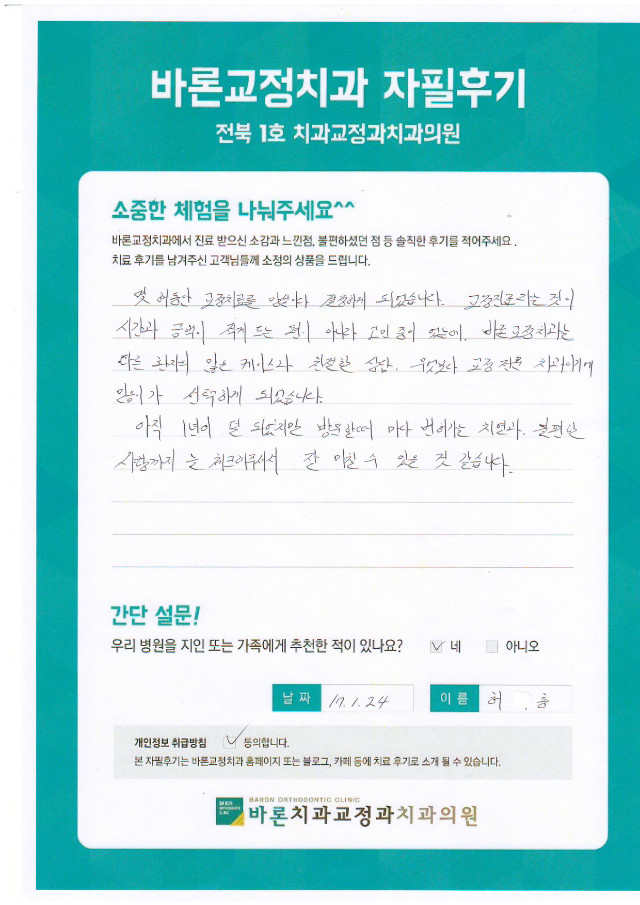 바론교정치과 자필후기
전북 1호 치과교정과치과의원
소중한 체험을 나눠주세요^^
바론교정치과에서 진료 받으신 소감과 느낀점, 불편하셨던 점 등 솔직한 후기를 적어주세요.
치료 후기를 남겨주신 고객님들께 소정의 상품을 드립니다.
몇 해동안 교정치료를 결정하게 되었습니다. 교정진료라는 것이
시간과 금액이 적게 드는 편이 아니라 고민 중이 었는데, 바론교정치과는
다른 환자의 많은 케이스와 친절한 상담, 무엇보다 교정 전문 치과이기에
선택하게 되었습니다.
아직 1년이 덜 되었지만 방문할때 마다 치면과, 불편한
사항까지 체크해주셔서 잘 마칠 수 있을 것 같습니다.
간단 설문!
우리 병원을 지인 또는 가족에게 추천한 적이 있나요? 네 아니오
날 짜 17.1.24 이 름 허
개인정보 취급방침 동의합니다.
본 자필후기는 바론교정치과 홈페이지 또는 블로그, 카페 등에 치료 후기로 소개 될 수 있습니다.
BARON ORTHODONTIC CLINIC
BARON ORTHODONTIC CLINIC
바론치과교정과치과의원